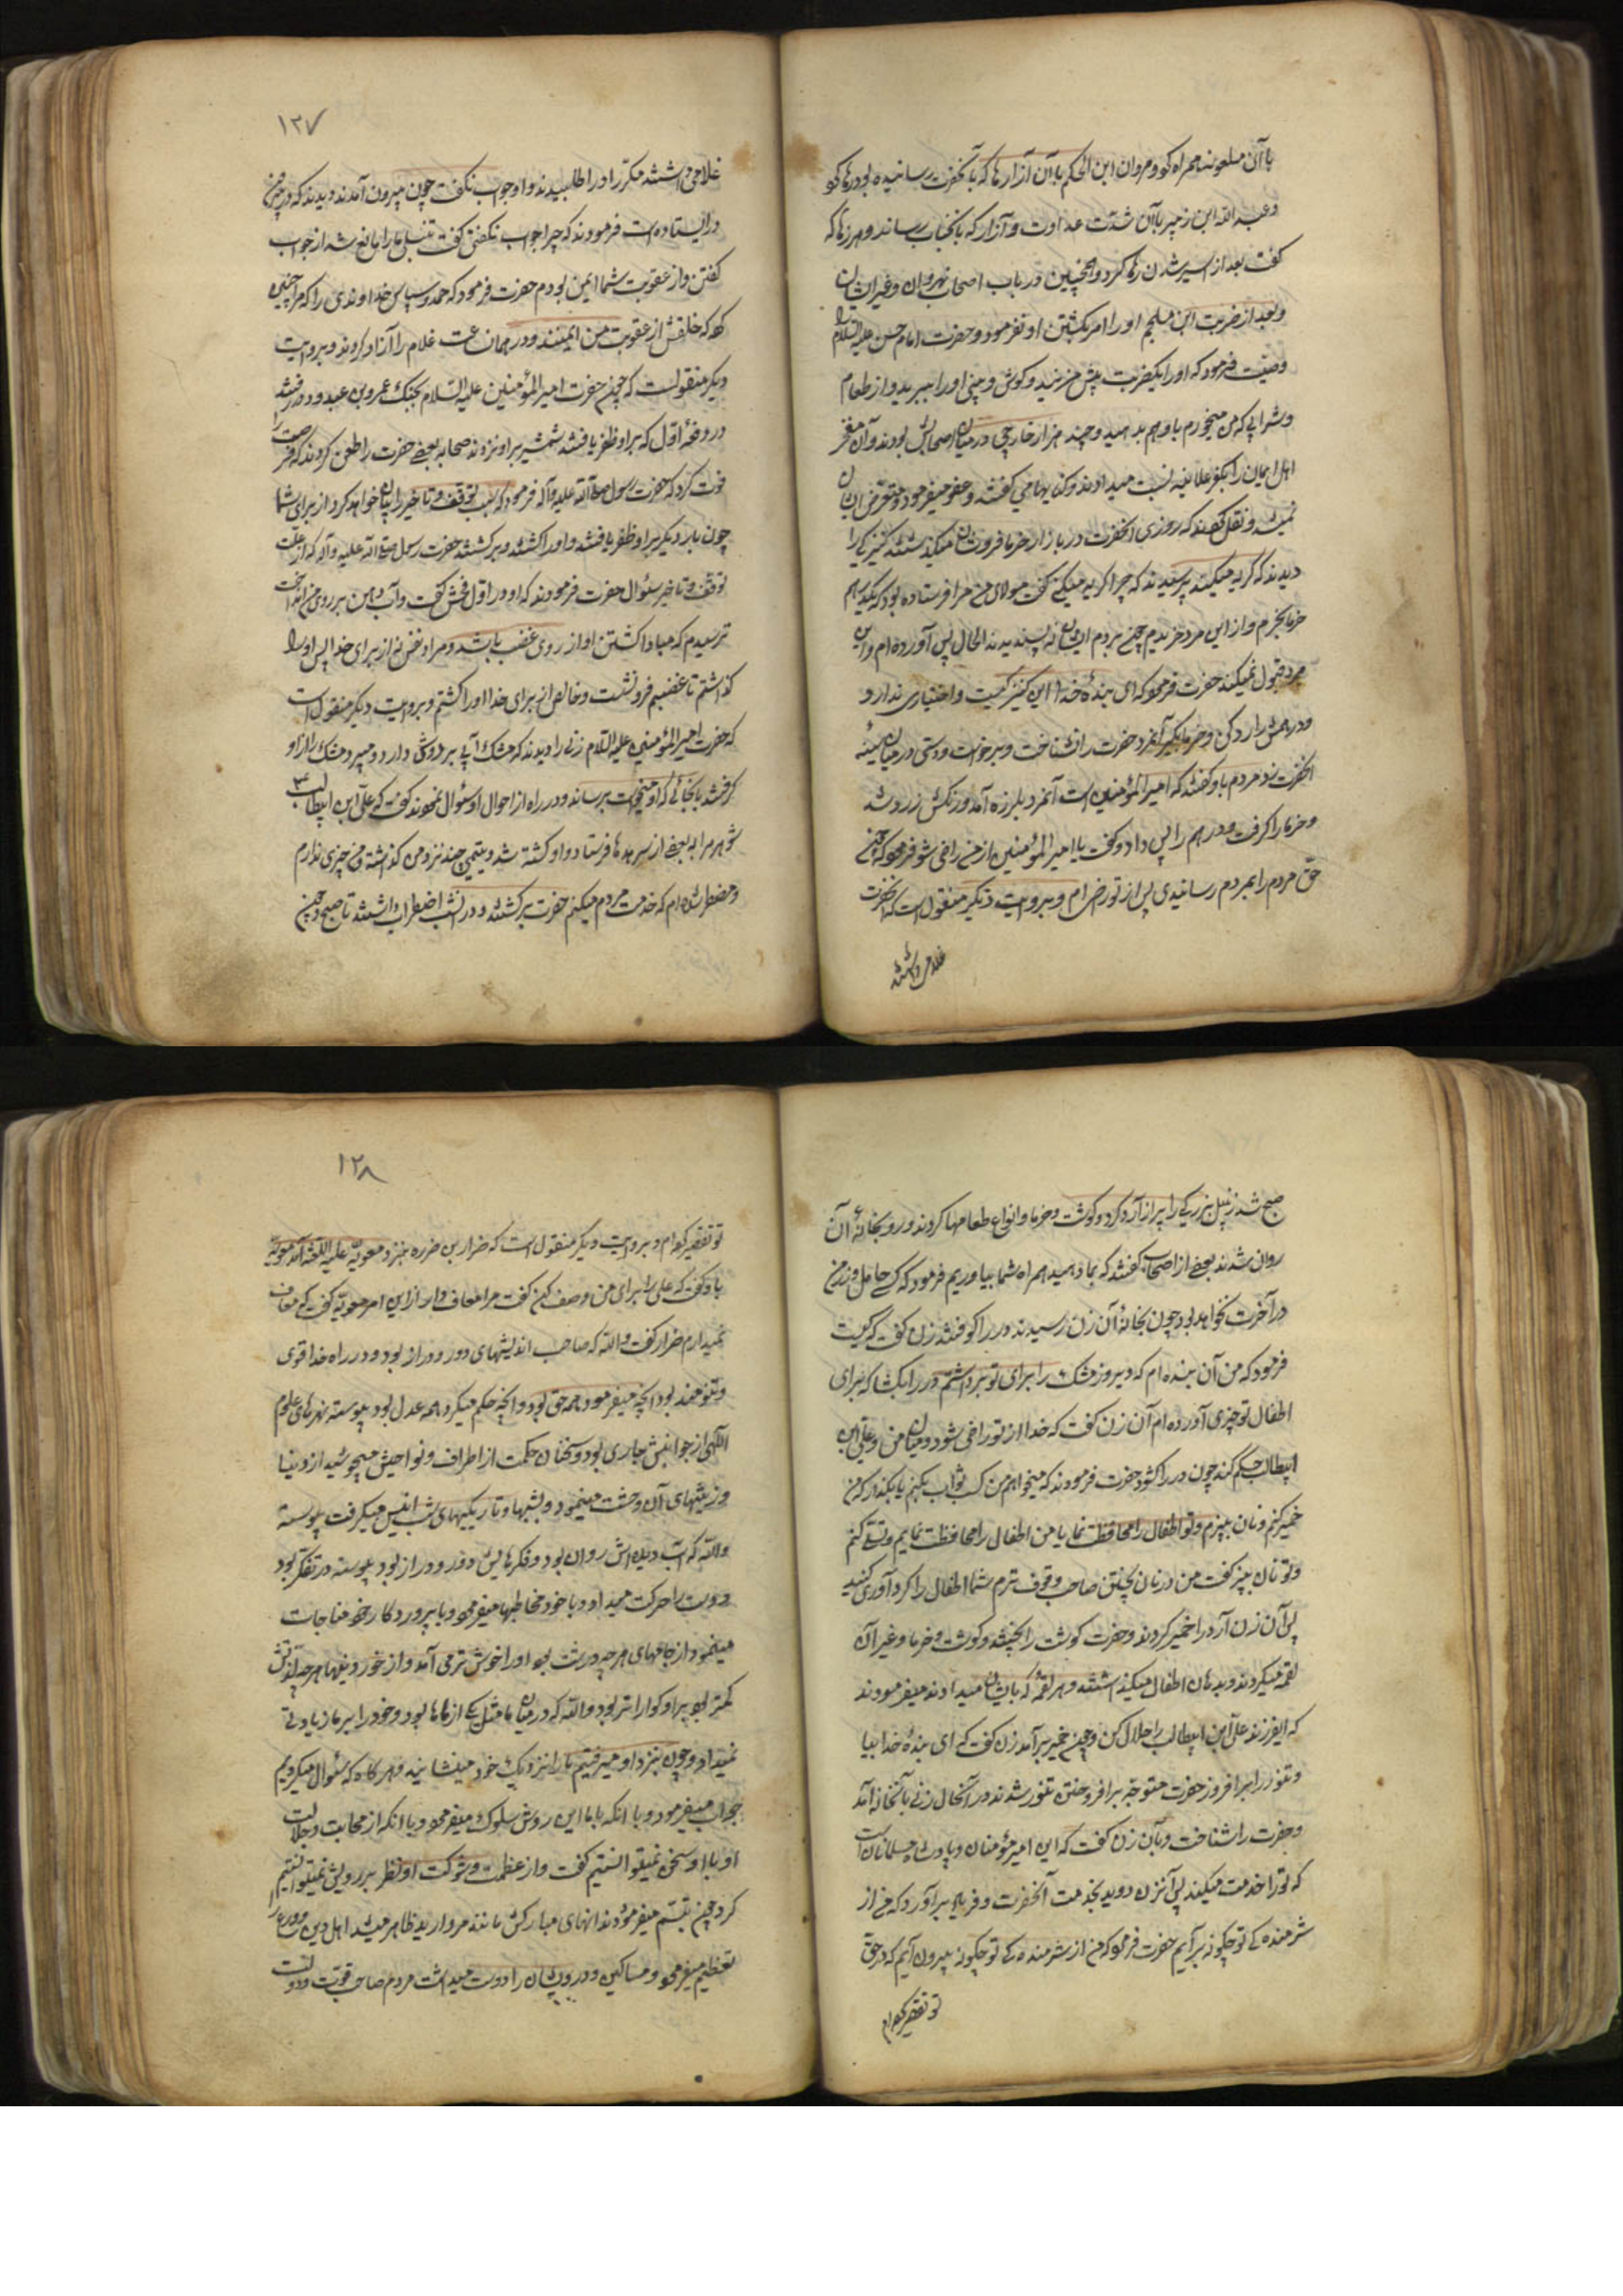 با آن ملعونه همراه کو و مروان ابن الحکم با آن آزارها که بآنحضرت رسانیده بود رها کو
و عبد الله ابن زبیر با آن شدت عداوت و آزار که بآنجناب رساند و هرزها که
گفت بعد از اسیر شدن رها کرد و همچنین در باب اصحاب نهروان و غیر ایشان
و بعد از ضربت ابن ملجم او را امر بکشتن او نفرمود و حضرت امام حسن علیه السلام را
وصیت فرمود که او را یکضربت پیش مزنید و گوش و بینی او را مبرید و از طعام
و شرابی که من میخورم باو هم بدهید و چند هزار خارجی در میان اصحابش بودند و آن مفخر
اهل ایمان را بکفر علانیه نسبت میدادند و کنایها می گفتند و عفو میفرمود و متعرض ایشان
نمیشد و نقل کرده‌اند که روزی آنحضرت در بازار خرما فروشان میگذشتند کنیزکی را
دیدند که گریه میکند پرسیدند که چرا گریه میکنی گفت مولای من مرا فرستاده بود که بیکدرهم
خرما بخرم و از این مرد خریدم چون بردم ایشان نه پسندیدند الحال پس آورده ام و این
مرد قبول نمیکند حضرت فرمود که ای بنده خدا این کنیز کیست و اختیاری ندارد
و درهمش را رد کن و خرما بگیر آنمرد حضرت را نشناخت و برخواست و دستی در میان سینه
آنحضرت زد مردم باو گفتند که امیر المؤمنین است آنمرد بلرزه آمد و رنگش زرد شد
و خرما را گرفت و درهم را پس داد و گفت یا امیر المؤمنین از من راضی شو فرمود که چون
حق مردم را بمردم رسانیدی پس از تو راضی ام و بروایت دیگر منقول است که آنحضرت
غلامی داشتند
۱۲۷
غلامی داشتند مکرّر او را طلبیدند و او جواب نگفت چون بیرون آمدند دیدند که در پیش
در ایستاده است فرمودند که چرا جواب نگفتی گفت تنبلی مرا مانع شد از جواب
گفتن و از عقوبت شما ایمن بودم حضرت فرمود که حمد و سپاس خداوندی را که مرا چنین
کرد که خلقش از عقوبت من ایمنند و در همان ساعت غلام را آزاد کردند و بروایت
دیگر منقولست که چون حضرت امیر المؤمنین علیه السلام بجنک عمرو بن عبدود رفتند
در دفعه اوّل که بر او ظفر یافتند شمشیر بر او نزدند صحابه بعضی حضرت را طعن کردند که فرصت را
فوت کرد که حضرت رسول صلی الله علیه و آله فرمود که سبب توقف و تاخیر را بیان خواهد کرد از برای شما
چون بار دیگر بر او ظفر یافتند و او را کشتند و برگشتند حضرت رسول صلی الله علیه و آله که از علت
توقف و تاخیر سئوال حضرت فرمودند که او در اوّل فحش گفت و آب دهن بر روی من انداخت
ترسیدم که مبادا کشتن او از روی غضب باشد و مراد نفس نه از برای خدا پس او را
گذاشتم تا غضبم فرو نشست و خالص از برای خدا او را کشتم و بروایت دیگر منقول است
که حضرت امیر المؤمنین علیه السلام زنی را دیدند که مشک آبی بر دوش دارد و میبرد مشک را از او
گرفتند تا بجائی که او میخواست برساند و در راه از احوال او سئوال نمودند گفت که علی ابن ابیطالب ع
شوهر مرا به بعضی از سرحدها فرستاد و او کشته شد و یتیمی چند نزد من گذاشته و من چیزی ندارم
و مضطر شده ام که خدمت مردم میکنم حضرت برگشتند و در آنشب اضطراب داشتند تا صبح و چون
صبح شد زنبیل بزرگی را پر از آرد کرد و گوشت و خرما و انواع طعامها کردند و رو بخانهٔ آن
روان شدند بعضی از اصحاب گفتند که بما دهید همراه شما بیاوریم فرمود که کسی حامل وزر من
در آخرت نخواهد بود چون بخانهٔ آن زن رسیدند در را کوفتند زن گفت که کیست
فرمود که من آن بنده ام که دیروز مشک را برای تو برداشتم در را بگشا که برای
اطفال تو چیزی آورده ام آن زن گفت که خدا از تو راضی شود و میان من و علی ابن
ابیطالب حکم کند چون در را گشود حضرت فرمودند که میخواهم من کسب ثواب بکنم یا بگذار که من
خمیر کنم و نان بپزم و تو اطفال را محافظت نما یا من اطفال را محافظت نمایم و تسلی کنم
و تو نان بپز گفت من در نان پختن صاحب وقوف ترم شما اطفال را گردآوری کنید
پس آن زن آرد را خمیر کردند و حضرت گوشت را پختند و گوشت و خرما و غیر آن
لقمه میکردند و بدهان اطفال میگذاشتند و هر لقمه که بایشان میدادند میفرمودند
که ایفرزند علی ابن ابیطالب را حلال کن و چون خمیر برآمد زن گفت که ای بنده خدا بیا
و تنور را برافروز حضرت متوجه برافروختن تنور شدند در آنحال زنی بآنخانه آمد
و حضرت را شناخت و بآن زن گفت که این امیر مؤمنان و پادشاه مسلمانان است
که تو را خدمت میکند پس آنزن دوید بخدمت آنحضرت و فریاد برآورد که من از
شرمنده کی تو چگونه برآیم حضرت فرمود که من از شرمنده کی تو چگونه بیرون آیم که در حق
تو تقصیر کرده ام
۱۲۸
تو تقصیر کرده ام و بروایت دیگر منقول است که ضرار بن ضمره بنزد معویه علیه اللعنه آمد معویه
باو گفت که علی را برای من وصف کن گفت مرا معاف دار از این امر معویه گفت که معاف
نمیدارم ضرار گفت والله که صاحب اندیشهای دور و دراز بود و در راه خدا قوی
و تنومند بود آنچه میفرمود همه حق بود و آنچه حکم میکرد همه عدل بود پیوسته نهرهای علوم
الهی از جوانبش جاری بود و سخنان حکمت از اطراف و نواحیش میجوشید از دنیا
و زینتهای آن وحشت مینمود و بشبها و تاریکیهای شب انس میگرفت پیوسته
والله که آب دیده اش روان بود و فکرهایش دور و دراز بود پیوسته در تفکر بود
و دست را حرکت میداد و با خود مخاطبها میفرمود و با پروردگار خود مناجات
مینمود از جامهای هر چه درشت بود او را خوش تر می آمد و از خوردنیها هر چه لذتش
کمتر بود بر او گواراتر بود والله که در میان ما مثل یکی از ماها بود و خود را بر ما زیادتی
نمیداد و چون بنزد او میرفتیم ما را نزدیک خود مینشانید و هر گاه که سئوال میکردیم
جواب میفرمود و با آنکه با ما این روش سلوک میفرمود و با آنکه از مهابت و جلالت
او با او سخن نمیتوانستیم گفت و از عظمت و شوکت او نظر بر رویش نمیتوانستیم
کرد چون تبسّم میفرمودند دندانهای مبارکش مانند مروارید ظاهر میشد اهل دین و ورع را
تعظیم میفرمود و مساکین و درویشان را دوست میداشت مردم صاحب قوّت و دولت